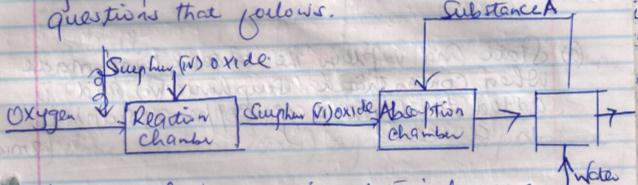 questions that follows.
Substance A
Sulphur (IV) oxide
Oxygen
Reaction
chamber
Sulphur (VI) oxide
Absorption
chamber
Water